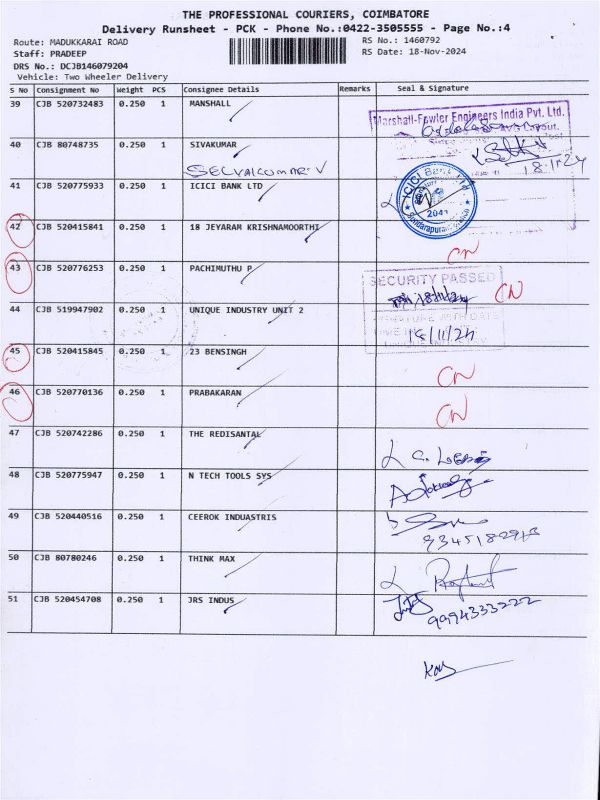 THE PROFESSIONAL COURIERS, COIMBATORE
Delivery Runsheet - PCK - Phone No.:0422-3505555 - Page No.:4
Route: MADUKKARAI ROAD RS No.: 1460792
Staff: PRADEEP RS Date: 18-Nov-2024
DRS No.: DCJB146079204
Vehicle: Two Wheeler Delivery
S No Consignment No Weight PCS Consignee Details Remarks Seal & Signature
39 CJB 520732483 0.250 1 MANSHALL
Marshall-Fowler Engineers India Pvt. Ltd.
40 CJB 80748735 0.250 1 SIVAKUMAR
SELVALCUMAR.V 18-11-24
41 CJB 520775933 0.250 1 ICICI BANK LTD
ICICI Bank Ltd
2041
Sundarapuram Branch
42 CJB 520415841 0.250 1 18 JEYARAM KRISHNAMOORTHI
CN
43 CJB 520776253 0.250 1 PACHIMUTHU P
SECURITY PASSED
CN
18/11/24
44 CJB 519947902 0.250 1 UNIQUE INDUSTRY UNIT 2
SIGNATURE WITH DATE
18/11/24
45 CJB 520415845 0.250 1 23 BENSINGH
CN
46 CJB 520770136 0.250 1 PRABAKARAN
CN
47 CJB 520742286 0.250 1 THE REDISANTAL
48 CJB 520775947 0.250 1 N TECH TOOLS SYS
49 CJB 520440516 0.250 1 CEEROK INDUASTRIS
50 CJB 80780246 0.250 1 THINK MAX
51 CJB 520454708 0.250 1 JRS INDUS
9994333222